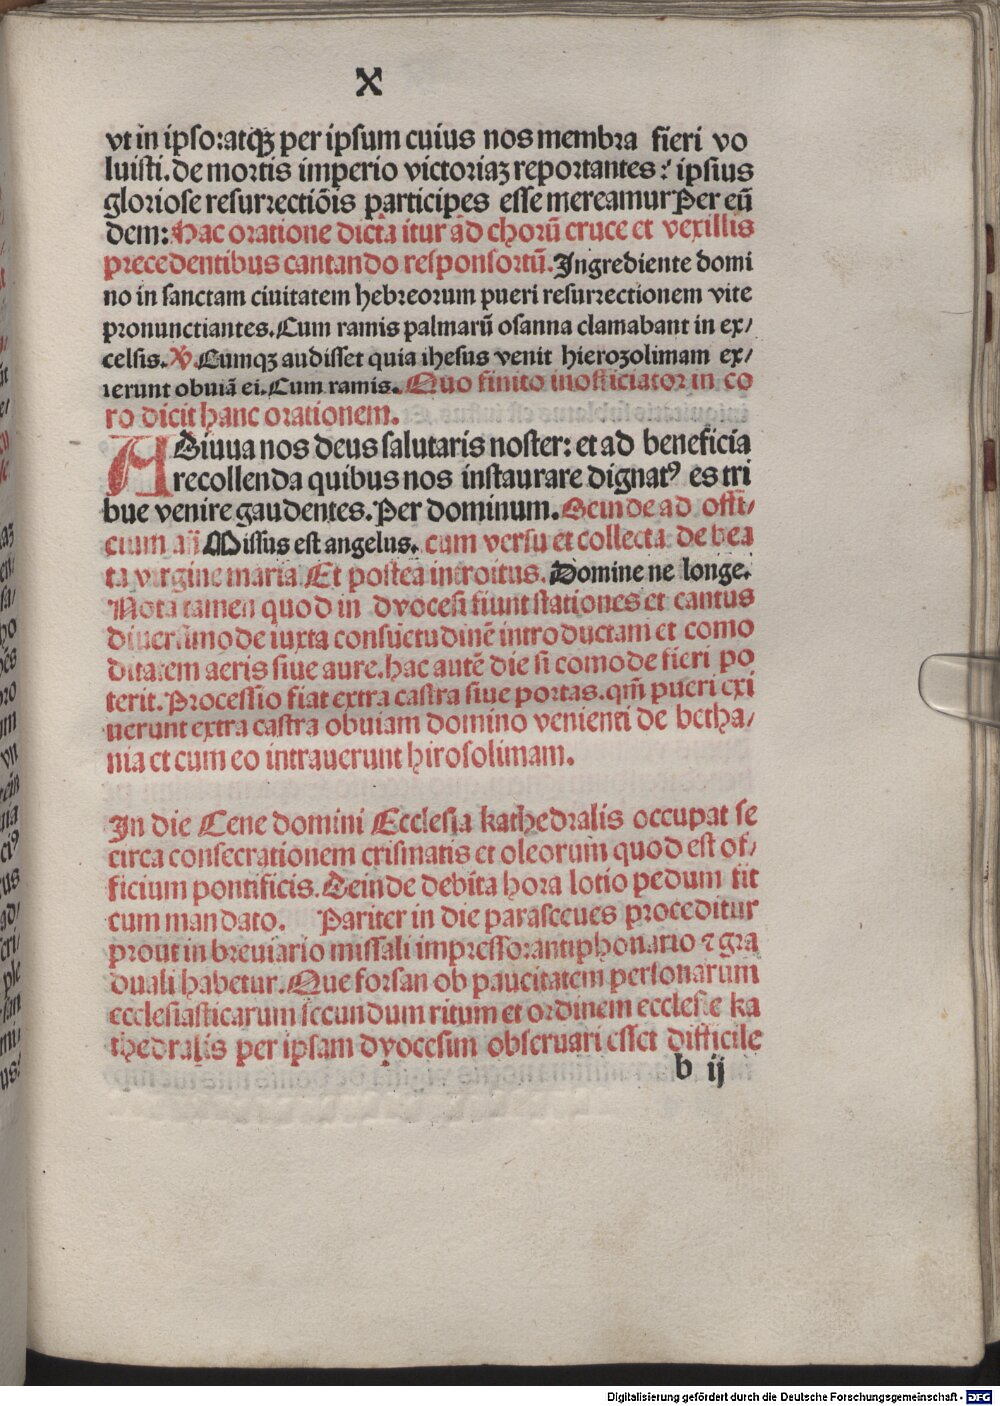 X
vt in ipso:atqꝫ per ipsum cuius nos membra fieri vo
luisti. de mortis imperio victoriaꝫ reportantes: ipsius
gloriose resurrectiõis participes esse mereamur Per eũ
dem: Hac oratione dicta itur ad chorũ cruce et vexillis
precedentibus cantando responsoriũ. Ingrediente domi
no in sanctam ciuitatem hebreorum pueri resurrectionem vite
pronunctiantes. Cum ramis palmarũ osanna clamabant in ex/
celsis. ℣. Cumqꝫ audisset quia ihesus venit hierozolimam ex/
ierunt obuiã ei. Cum ramis. Quo finito inofficiator in co
ro dicit hanc orationem.
ADiuua nos deus salutaris noster: et ad beneficia
recollenda quibus nos instaurare dignatꝰ es tri
bue venire gaudentes. Per dominum. Deinde ad offi/
cium añ Missus est angelus. cum versu et collecta de bea
ta virgine maria. Et postea introitus. Domine ne longe.
Nota tamen quod in dyocesi fiunt stationes et cantus
diuersimode iuxta consuetudinẽ introductam et como
ditatem aeris siue aure. hac autẽ die si comode fieri po
terit. Processio fiat extra castra siue portas. qm̃ pueri exi
uerunt extra castra obuiam domino venienti de betha/
nia et cum eo intrauerunt hirosolimam.
In die Cene domini Ecclesia kathedralis occupat se
circa consecrationem crismatis et oleorum quod est of/
ficium pontificis. Deinde debita hora lotio pedum fit
cum mandato. Pariter in die parasceues proceditur
prout in breuiario missali impresso: antiphonario ⁊ gra
duali habetur. Que forsan ob paucitatem personarum
ecclesiasticarum secundum ritum et ordinem ecclesie ka
thedralis per ipsam dyocesim obseruari esset difficile
b ij
Digitalisierung gefördert durch die Deutsche Forschungsgemeinschaft - DFG